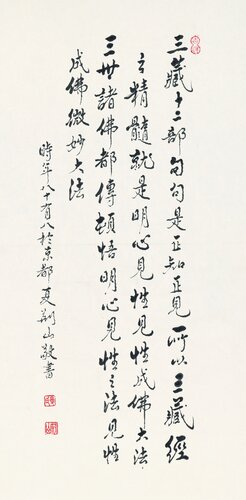 三藏十二部句句是正知正見所以三藏經
之精髓就是明心見性見性成佛大法
三世諸佛都傳頓悟明心見性之法見性
成佛微妙大法
時年八十有八於京都夏荊山敬書